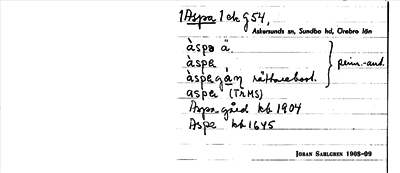 1 Aspa 1 ck g 54,
Askersunds sn, Sundbo hd, Örebro län
àspa ä
àspa } pers.-and.
àspagáṇ rättarebost.
aspa (TkMS)
Aspa gård kb 1904
Aspe kb 1645
JOHAN SAHLGREN 1908-09